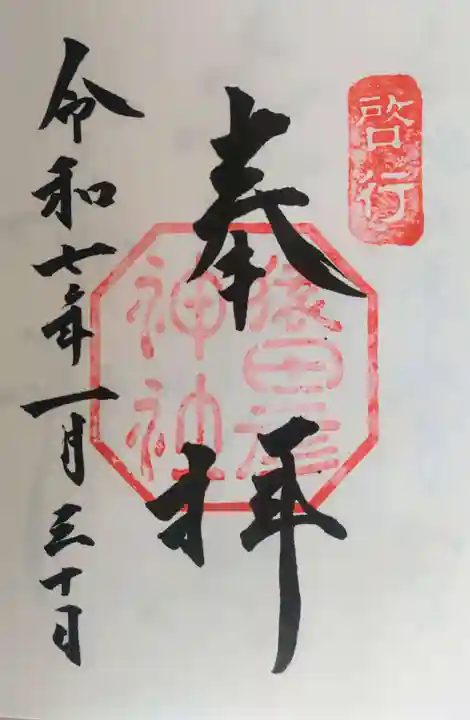 啓行
奉拝
猿田彦
神社
令和七年一月三十日